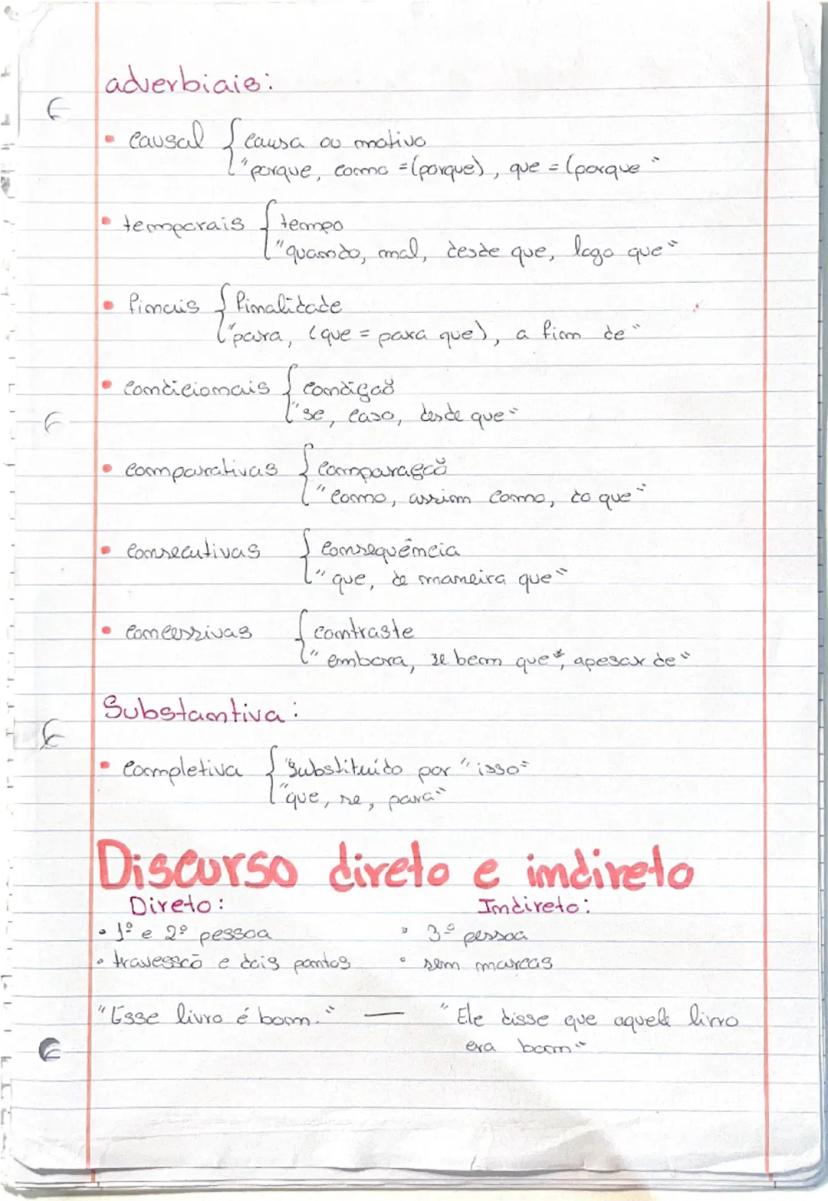 adverbiais:
• causal { causa ou motivo
"porque, como =(porque), que = (porque"
• temporais { tempo
"quando, mal, desde que, logo que"
• finais { finalidade
"para, (que = para que), a fim de"
• condicionais { condição
"se, caso, desde que"
• comparativas { comparação
"como, assim como, do que"
• consecutivas { consequência
"que, de maneira que"
• concessivas { contraste
"embora, se bem que", apesar de"
Substantiva:
• completiva { "substituído por "isso"
"que, se, para"
Discurso direto e indireto
Direto: Indireto:
• 1º e 2º pessoa • 3º pessoa
• travessão e dois pontos • sem marcas
"Esse livro é bom." — "Ele disse que aquele livro
era bom"